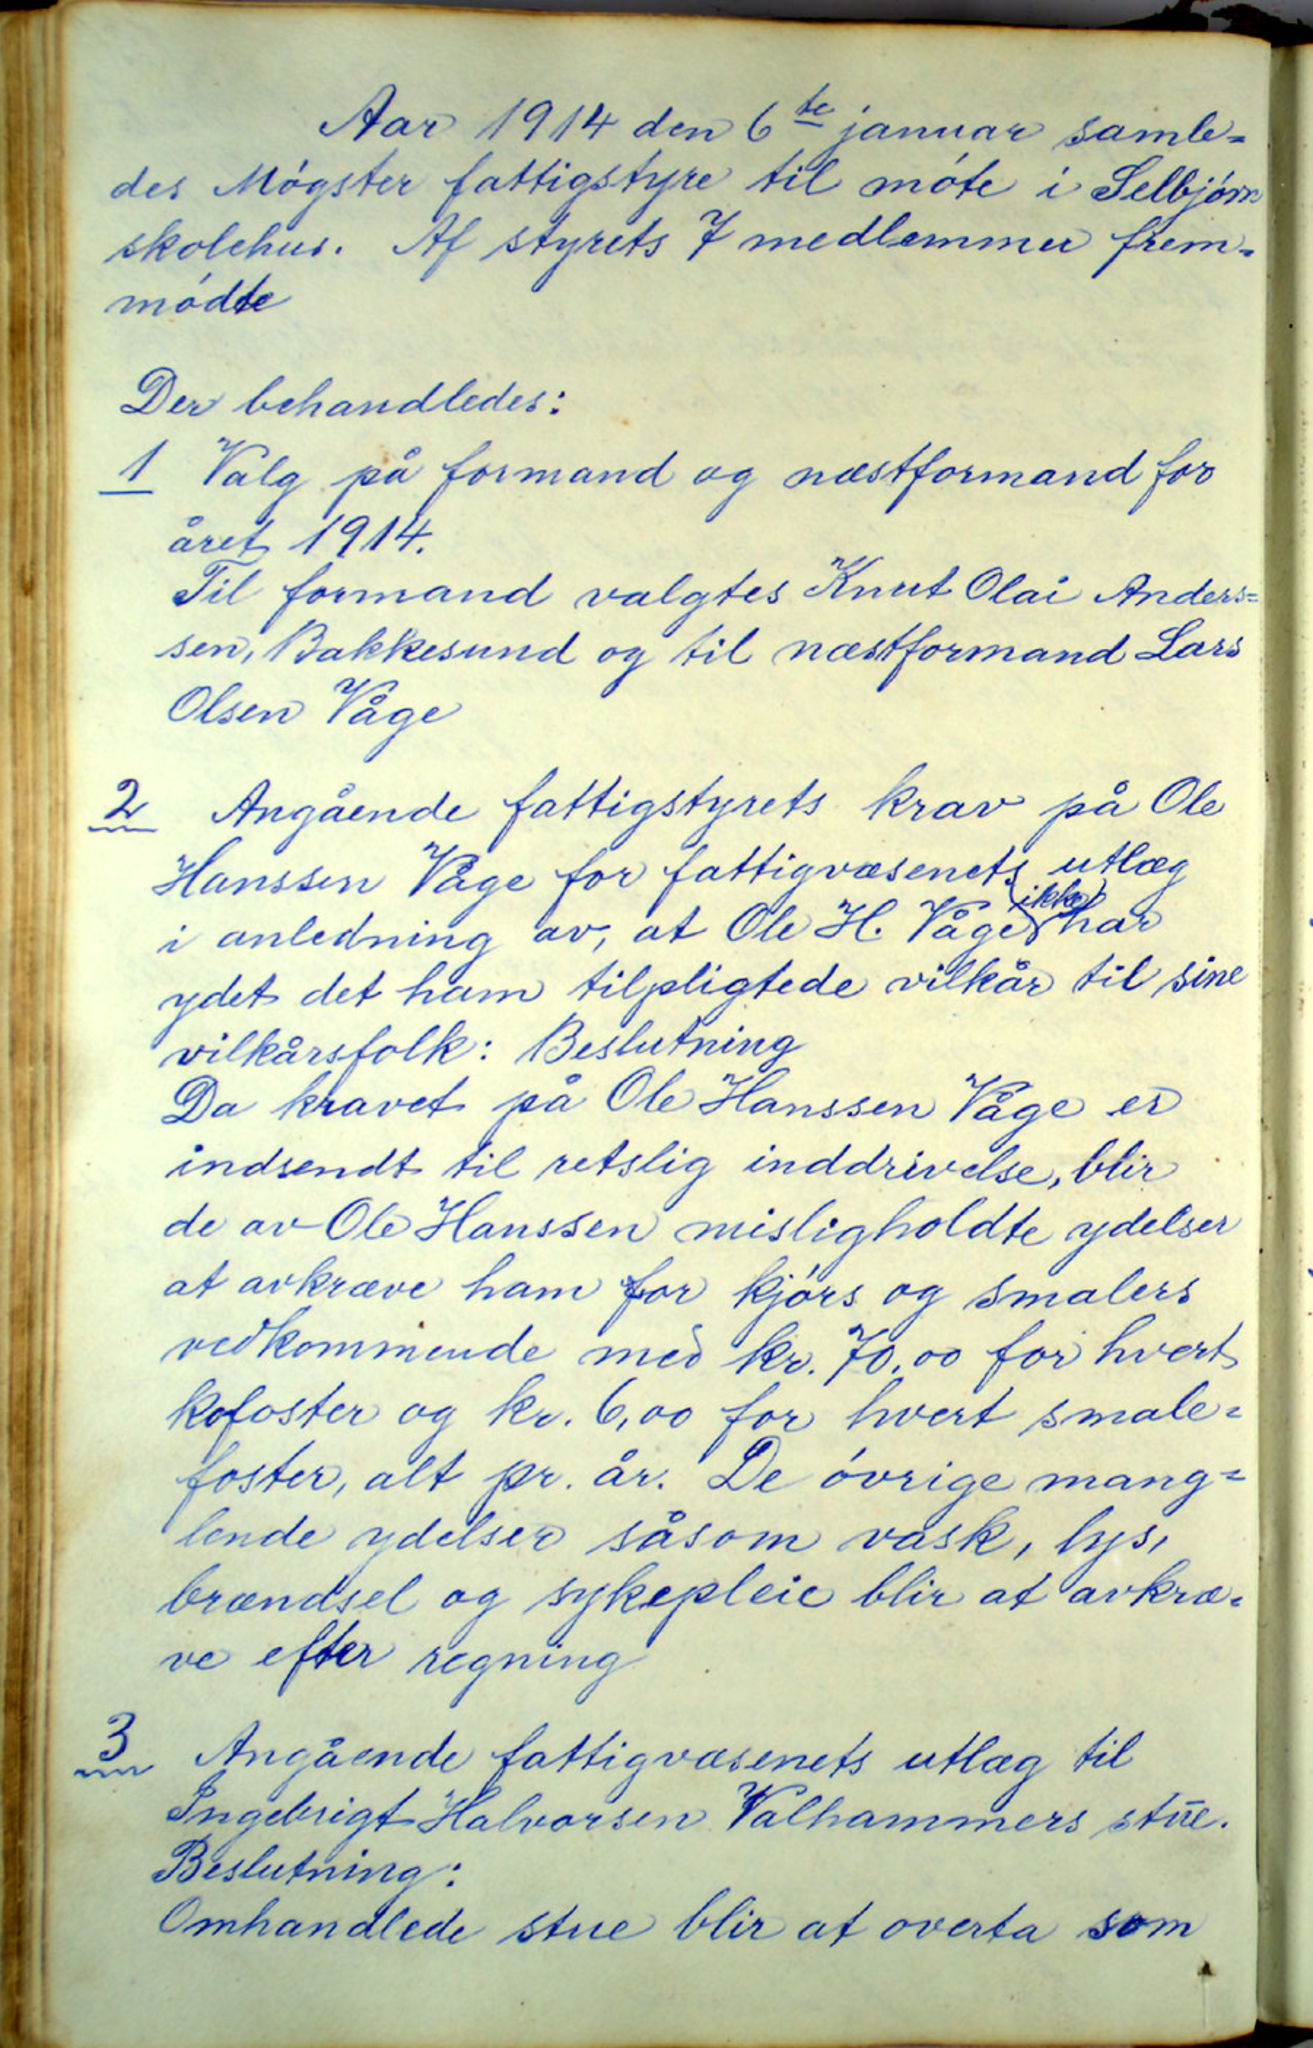 Aar 1914 den 6te januar samle=
des Møgster fattigstyre til møte i Selbjørn
skolehus. Af styrets 7 medlemmer frem=
mødte
Der behandledes:
1 Valg på formand og næstformand for
året 1914.
Til formand valgtes Knut Olai Anders=
sen, Bakkesund og til næstformand Lars
Olsen Våge
2 Angående fattigstyrets krav på Ole
Hanssen Våge for fattigvæsenets utlæg
i anledning av, at Ole H. Våge (ikke) har
ydet det ham tilpligtede vilkår til sine
vilkårsfolk: Beslutning
Da kravet på Ole Hanssen Våge er
indsendt til retslig inddrivelse, blir
de av Ole Hanssen misligholdte ydelser
at avkræve ham for kjørs og smalers
vedkommende med kr. 70.00 for hvert
kofoster og kr. 6,00 for hvert smale=
foster, alt pr. år. De øvrige mang=
lende ydelser såsom vask, lys,
brændsel og sykepleie blir at avkræ=
ve efter regning
3 Angående fattigvæsenets utlæg til
Ingebrigt Halvorsen Valhammers stue.
Beslutning:
Omhandlede stue blir at overta som